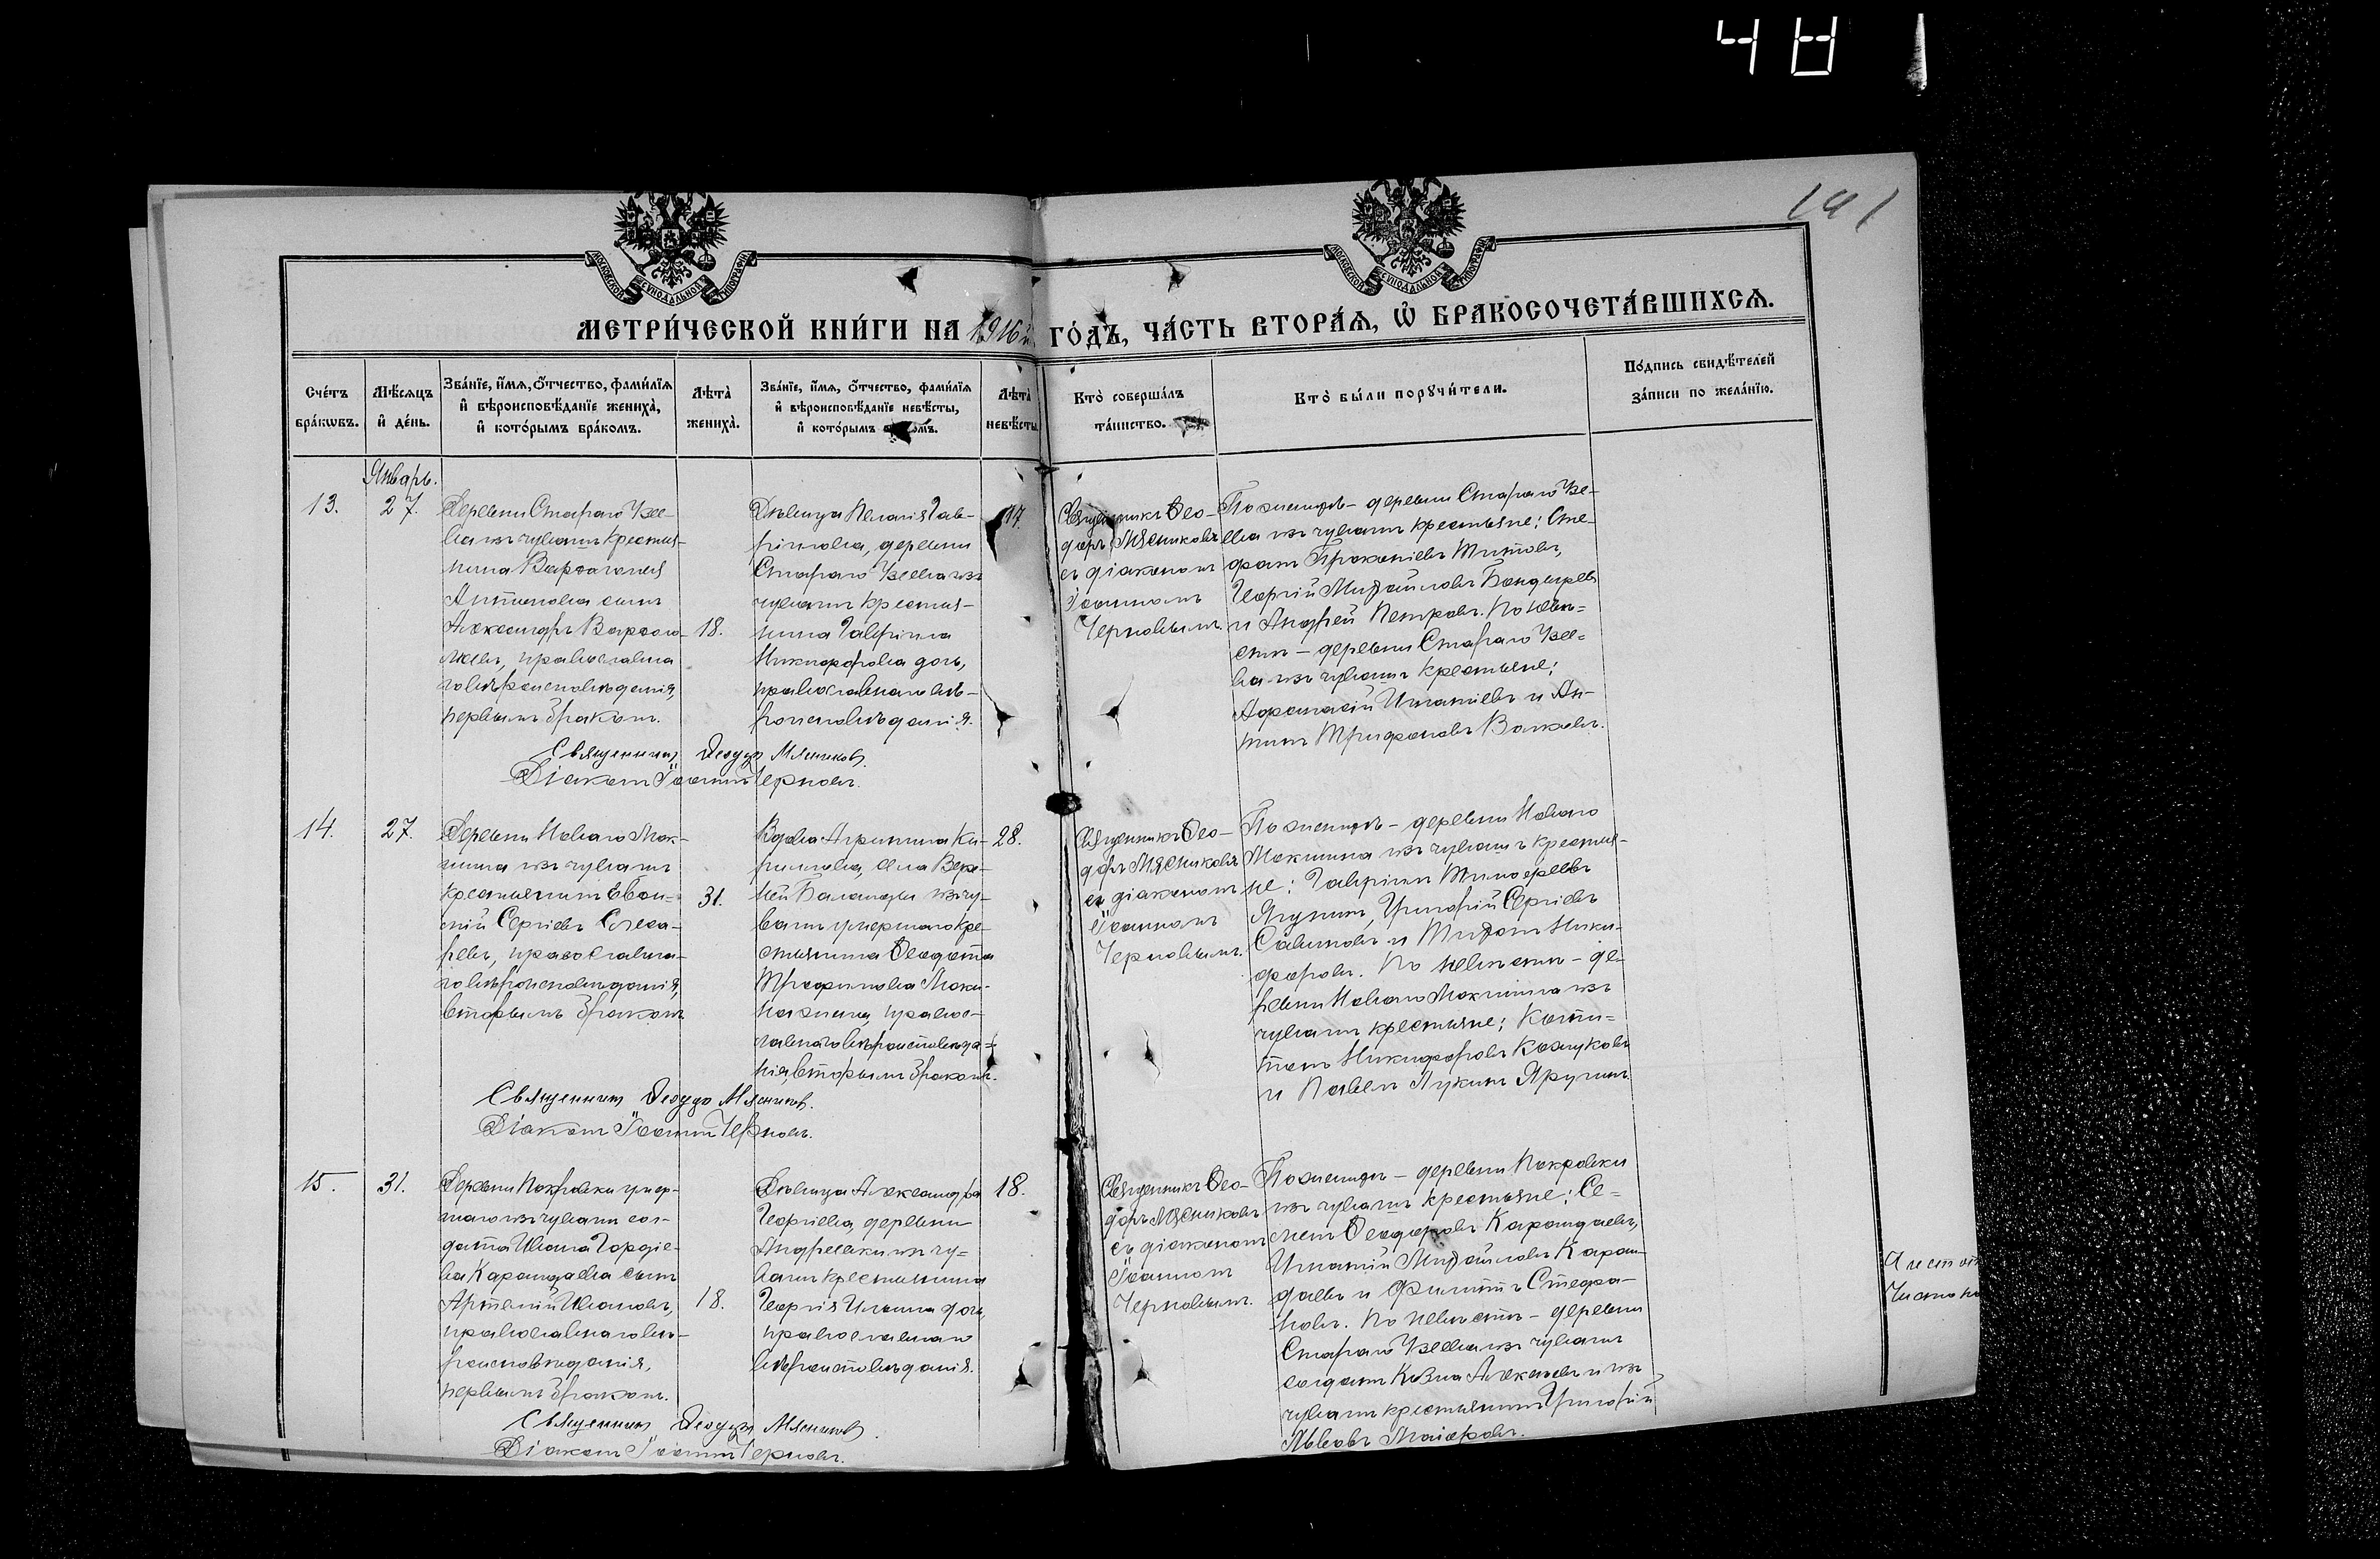 481
141
МОСКОВСКОЙ СѴНОДАЛЬНОЙ ТИПОГРАФІИ
МОСКОВСКОЙ СѴНОДАЛЬНОЙ ТИПОГРАФІИ
МЕТРИ́ЧЕСКОЙ КНИ́ГИ НА 1916 й ГО́ДЪ, ЧА́СТЬ ВТОРА́Ѧ, Ѽ БРАКОСОЧЕТА́ВШИХСѦ.
Сче́тъ бра́кѡвъ.
Мѣ́сѧцъ и҆ де́нь.
Зва́нїе, и҆́мѧ, ѻ҆́тчество, фами́лїѧ и҆ вѣроисповѣ́данїе жениха̀, и҆ кото́рымъ бра́комъ.
Лѣта̀ жениха̀.
Зва́нїе, и҆́мѧ, ѻ҆́тчество, фами́лїѧ и҆ вѣроисповѣ́данїе невѣ́сты, и҆ кото́рымъ бра́комъ.
Лѣта̀ невѣ́сты.
Кто̀ соверша́лъ та́инство.
Кто̀ бы́ли порꙋчи́тели.
По́дпись свидѣ́телей за́писи по жела́нїю.
Январь.
13.
27.
Деревни Стараго Узе-
ева изъ чувашъ крестья-
нина Варѳоломея
Антипова сынъ
Александръ Варѳоло-
меевъ, православна-
го вѣроисповѣданія,
первымъ бракомъ.
18.
Дѣвица Пелагія Гав-
риилова, деревни
Стараго Узеева изъ
чувашъ крестья-
нина Гавріила
Никифорова дочь,
православнаго вѣ-
роисповѣданія.
17.
Священникъ Ѳео-
доръ Мясниковъ
съ діакономъ
Іоанномъ
Черновымъ.
По женихѣ - деревни Стараго Узе-
ева изъ чувашъ крестьяне: Сте-
фанъ Прокопіевъ Титовъ,
Георгій Михайловъ Бондыревъ
и Андрей Петровъ. По невѣ=
стѣ - деревни Стараго Узе=
ева изъ чувашъ крестьяне:
Аѳанасій Игнатіевъ и Ан-
типъ Трифоновъ Волковъ.
Священникъ Ѳеодоръ Мясниковъ.
Діаконъ Іоаннъ Черновъ.
14.
27.
Деревни Новаго Мок-
шина изъ чувашъ
крестьянинъ Евѳи=
мій Сергіевъ Слеса-
ревъ, православна-
го вѣроисповѣданія,
вторымъ бракомъ
31.
Вдова Агрипина Ки-
риллова, села Верх-
ней изъ чу-
вашъ умершаго кре-
стьянина Ѳеодота
Трофимова Моки-
на жена, правос-
лавнаго вѣроисповѣда=
нія, вторымъ бракомъ.
28.
Священникъ Ѳео-
доръ Мясниковъ
съ діакономъ
Іоанномъ
Черновымъ.
По женихѣ - деревни Новаго
Мокшина изъ чувашъ крестья-
не: Гавріилъ Тимоѳеевъ
Ягунинъ, Григорій Сергіевъ
Савиновъ и Тихонъ Ники-
форовъ. По невѣстѣ - де-
ревни Новаго Мокшина изъ
чувашъ крестьяне:
Никифоровъ Кожуковъ
и Павелъ Лукинъ
Священникъ Ѳеодоръ Мясниковъ.
Діаконъ Іоаннъ Черновъ.
15.
31.
Деревни Покровки умер-
шаго изъ чувашъ сол-
дата Ивана Гордіе-
ва Карандаева сынъ
Артемій Ивановъ,
православнаго вѣ-
роисповѣданія,
первымъ бракомъ.
18.
Дѣвица Александра
Георгіева, деревни
Андреевки изъ чу=
вашъ крестьянина
Георгія Ильина дочь,
православнаго
вѣроисповѣданія.
18.
Священникъ Ѳео-
доръ Мясниковъ
съ діакономъ
Іоанномъ
Черновымъ.
По женихѣ - деревни Покровки
изъ чувашъ крестьяне: Се=
менъ Ѳеодоровъ Карандаевъ,
Игнатій Михайловъ Каран-
даевъ и Филиппъ Стефа-
новъ. По невѣстѣ - деревни
Стараго Узеева изъ чувашъ
солдатъ Козма Алексѣевъ и изъ
чувашъ крестьянинъ Григорій
Львовъ Маіоровъ.
Священникъ Ѳеодоръ Мясниковъ.
Діаконъ Іоаннъ Черновъ.